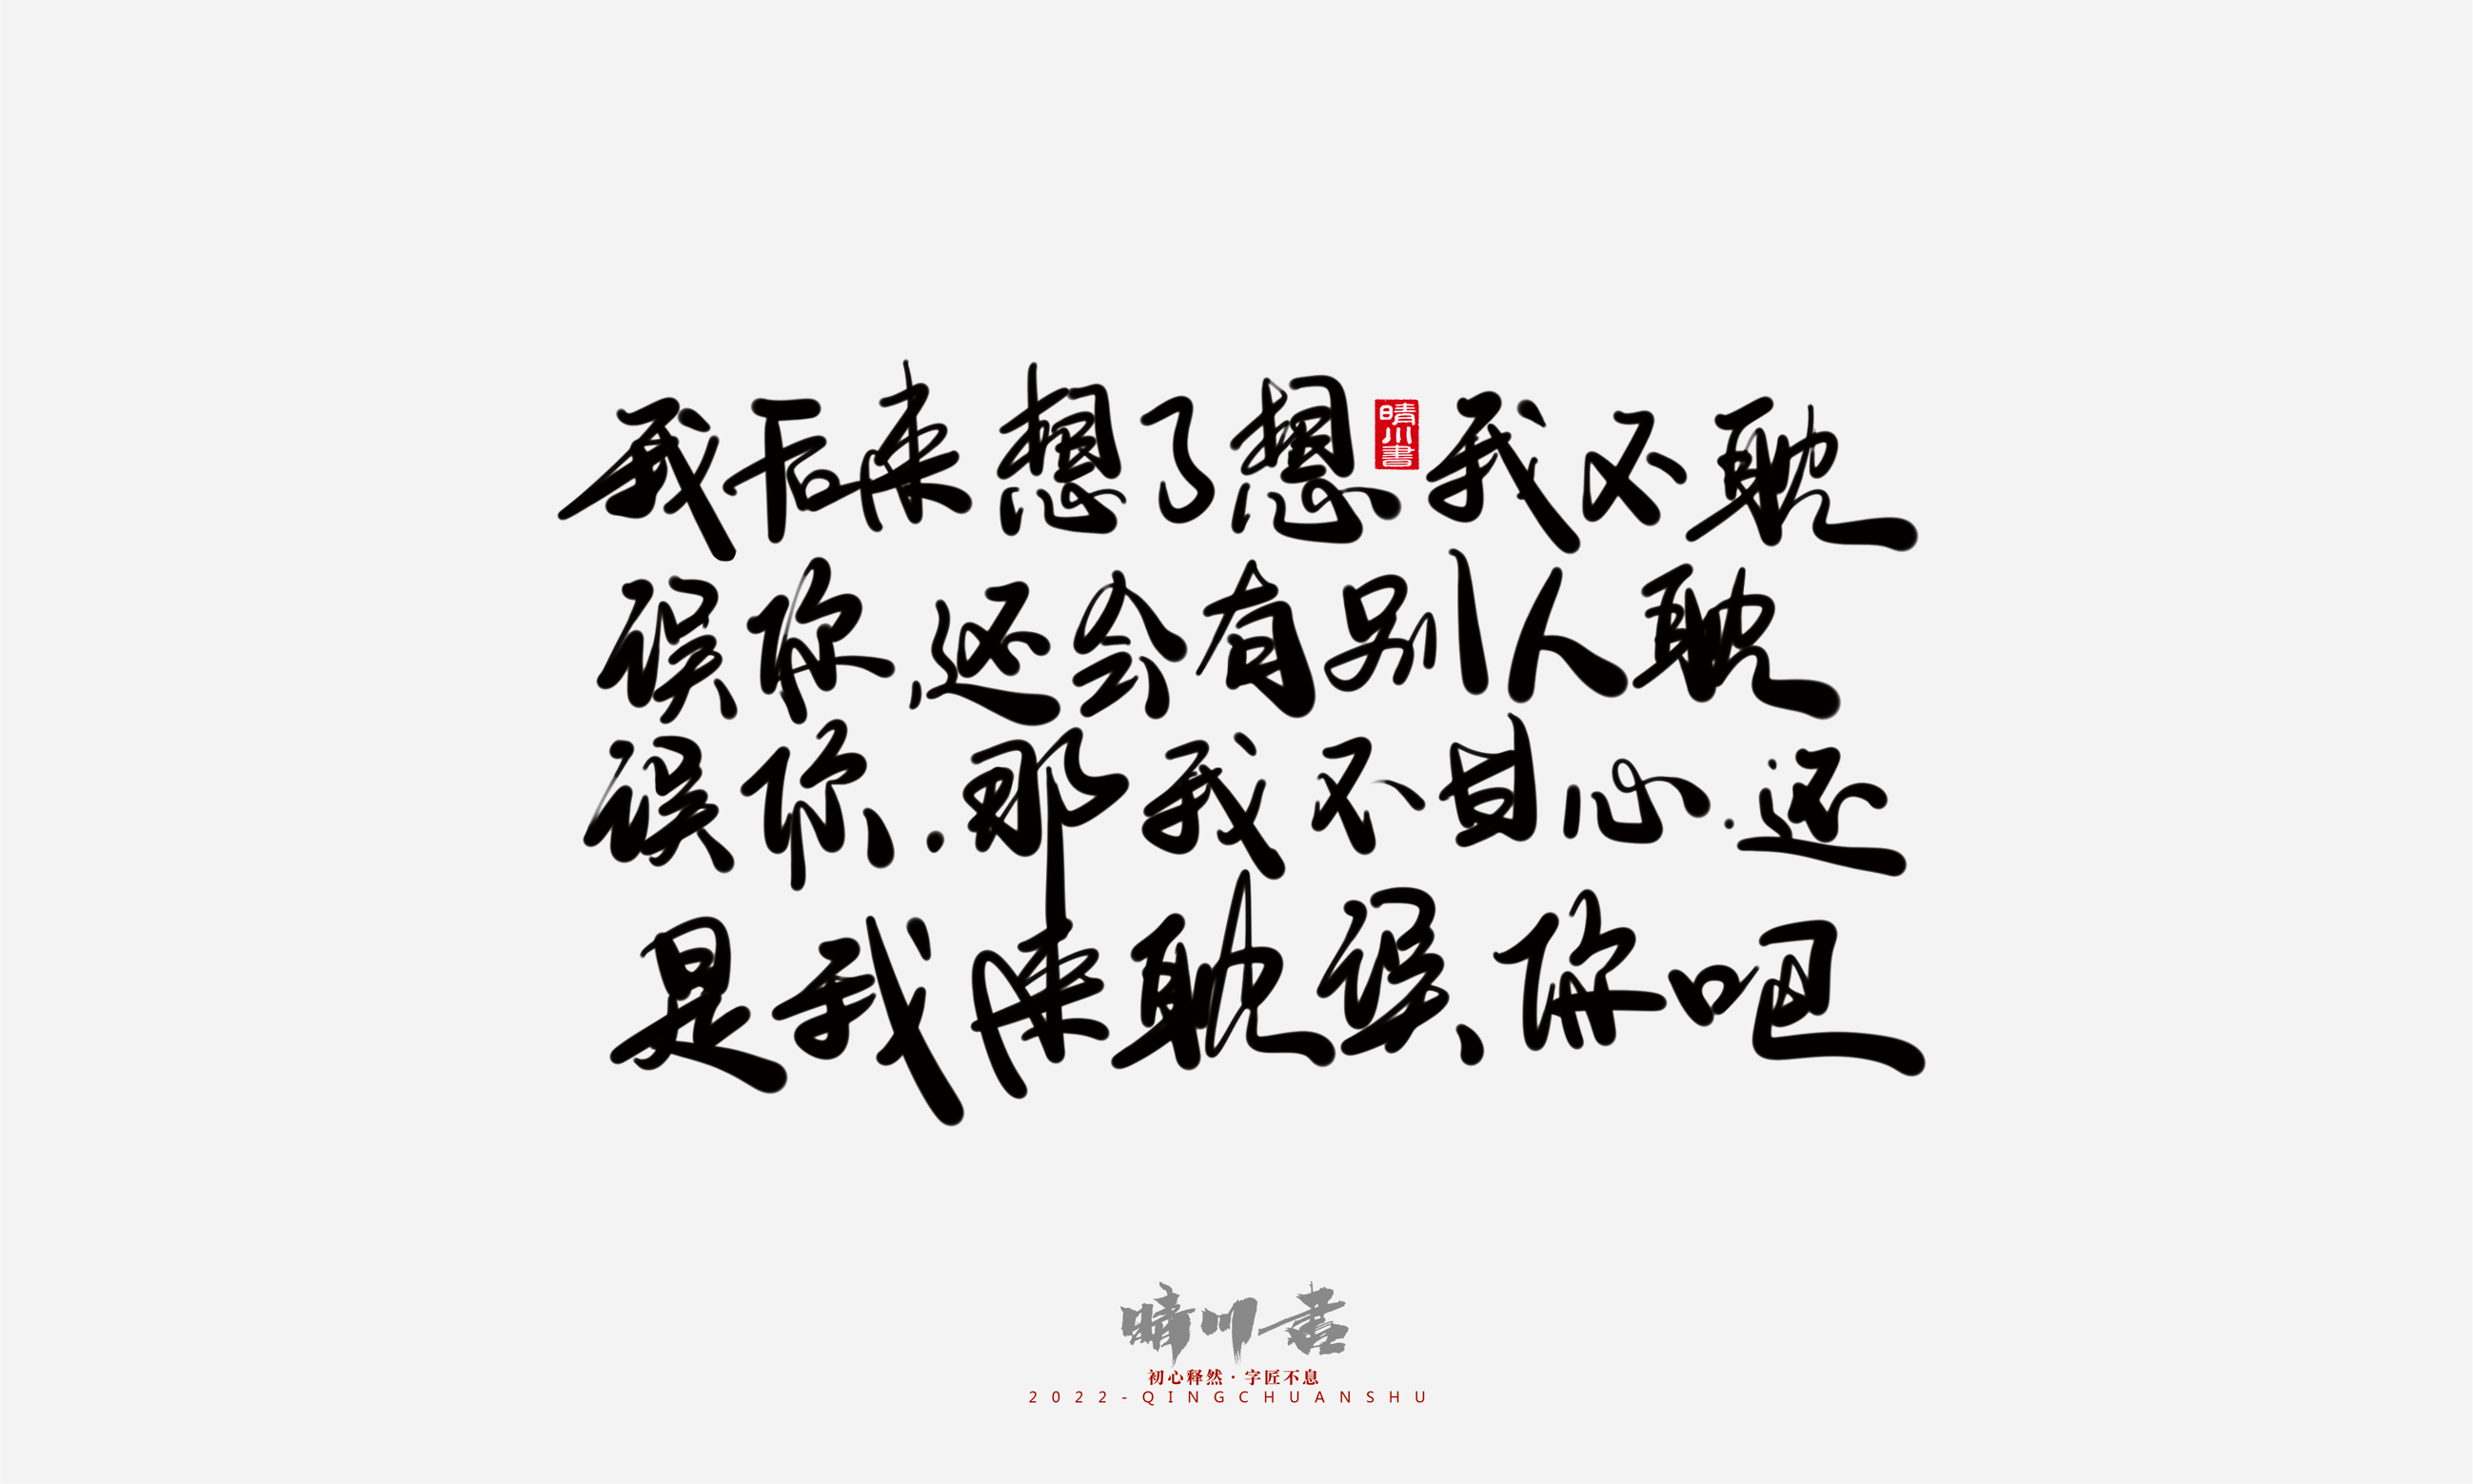 我后来想了想 我不耽
误你,还会有别人耽
误你.那我不甘心.还
是我来耽误你吧
晴川書
晴川书
初心释然·字匠不息
2022-QINGCHUANSHU